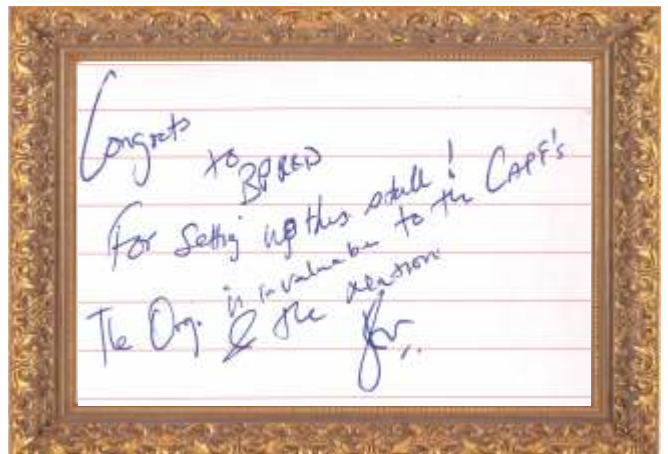 Congrats
to BPR&D
For setting up this stall!
The Org. is invaluable to the CAPF's
& the nation